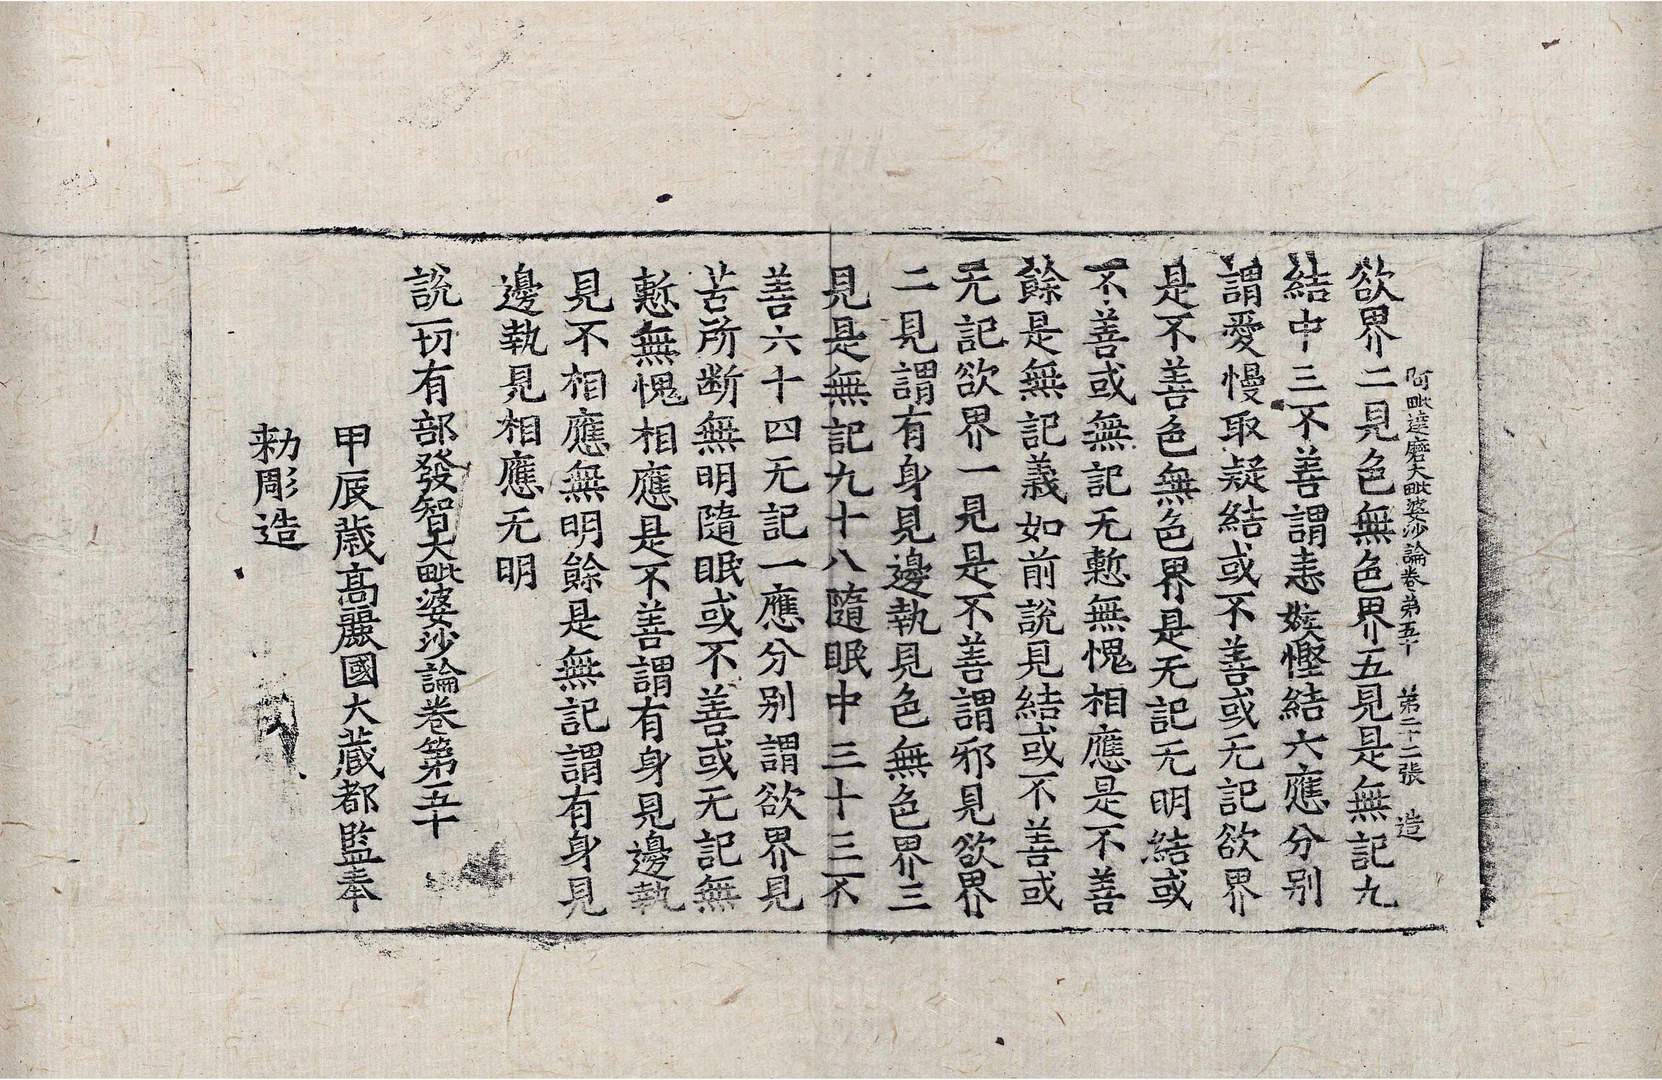 阿毗達磨大毗婆沙論卷第五十　第二十二張　造
欲界二見色無色界五見是無記九
結中三不善謂恚嫉慳結六應分別
謂愛慢取疑結或不善或无記欲界
是不善色無色界是无記无明結或
不善或無記无慙無愧相應是不善
餘是無記義如前說見結或不善或
无記欲界一見是不善謂邪見欲界
二見謂有身見邊執見色無色界三
見是無記九十八隨眠中三十三不
善六十四无記一應分別謂欲界見
苦所断無明隨眠或不善或无記無
慙無愧相應是不善謂有身見邊執
見不相應無明餘是無記謂有身見
邊執見相應无明
說一切有部發智大毗婆沙論卷第五十
甲辰歲高麗國大藏都監奉
勅彫造